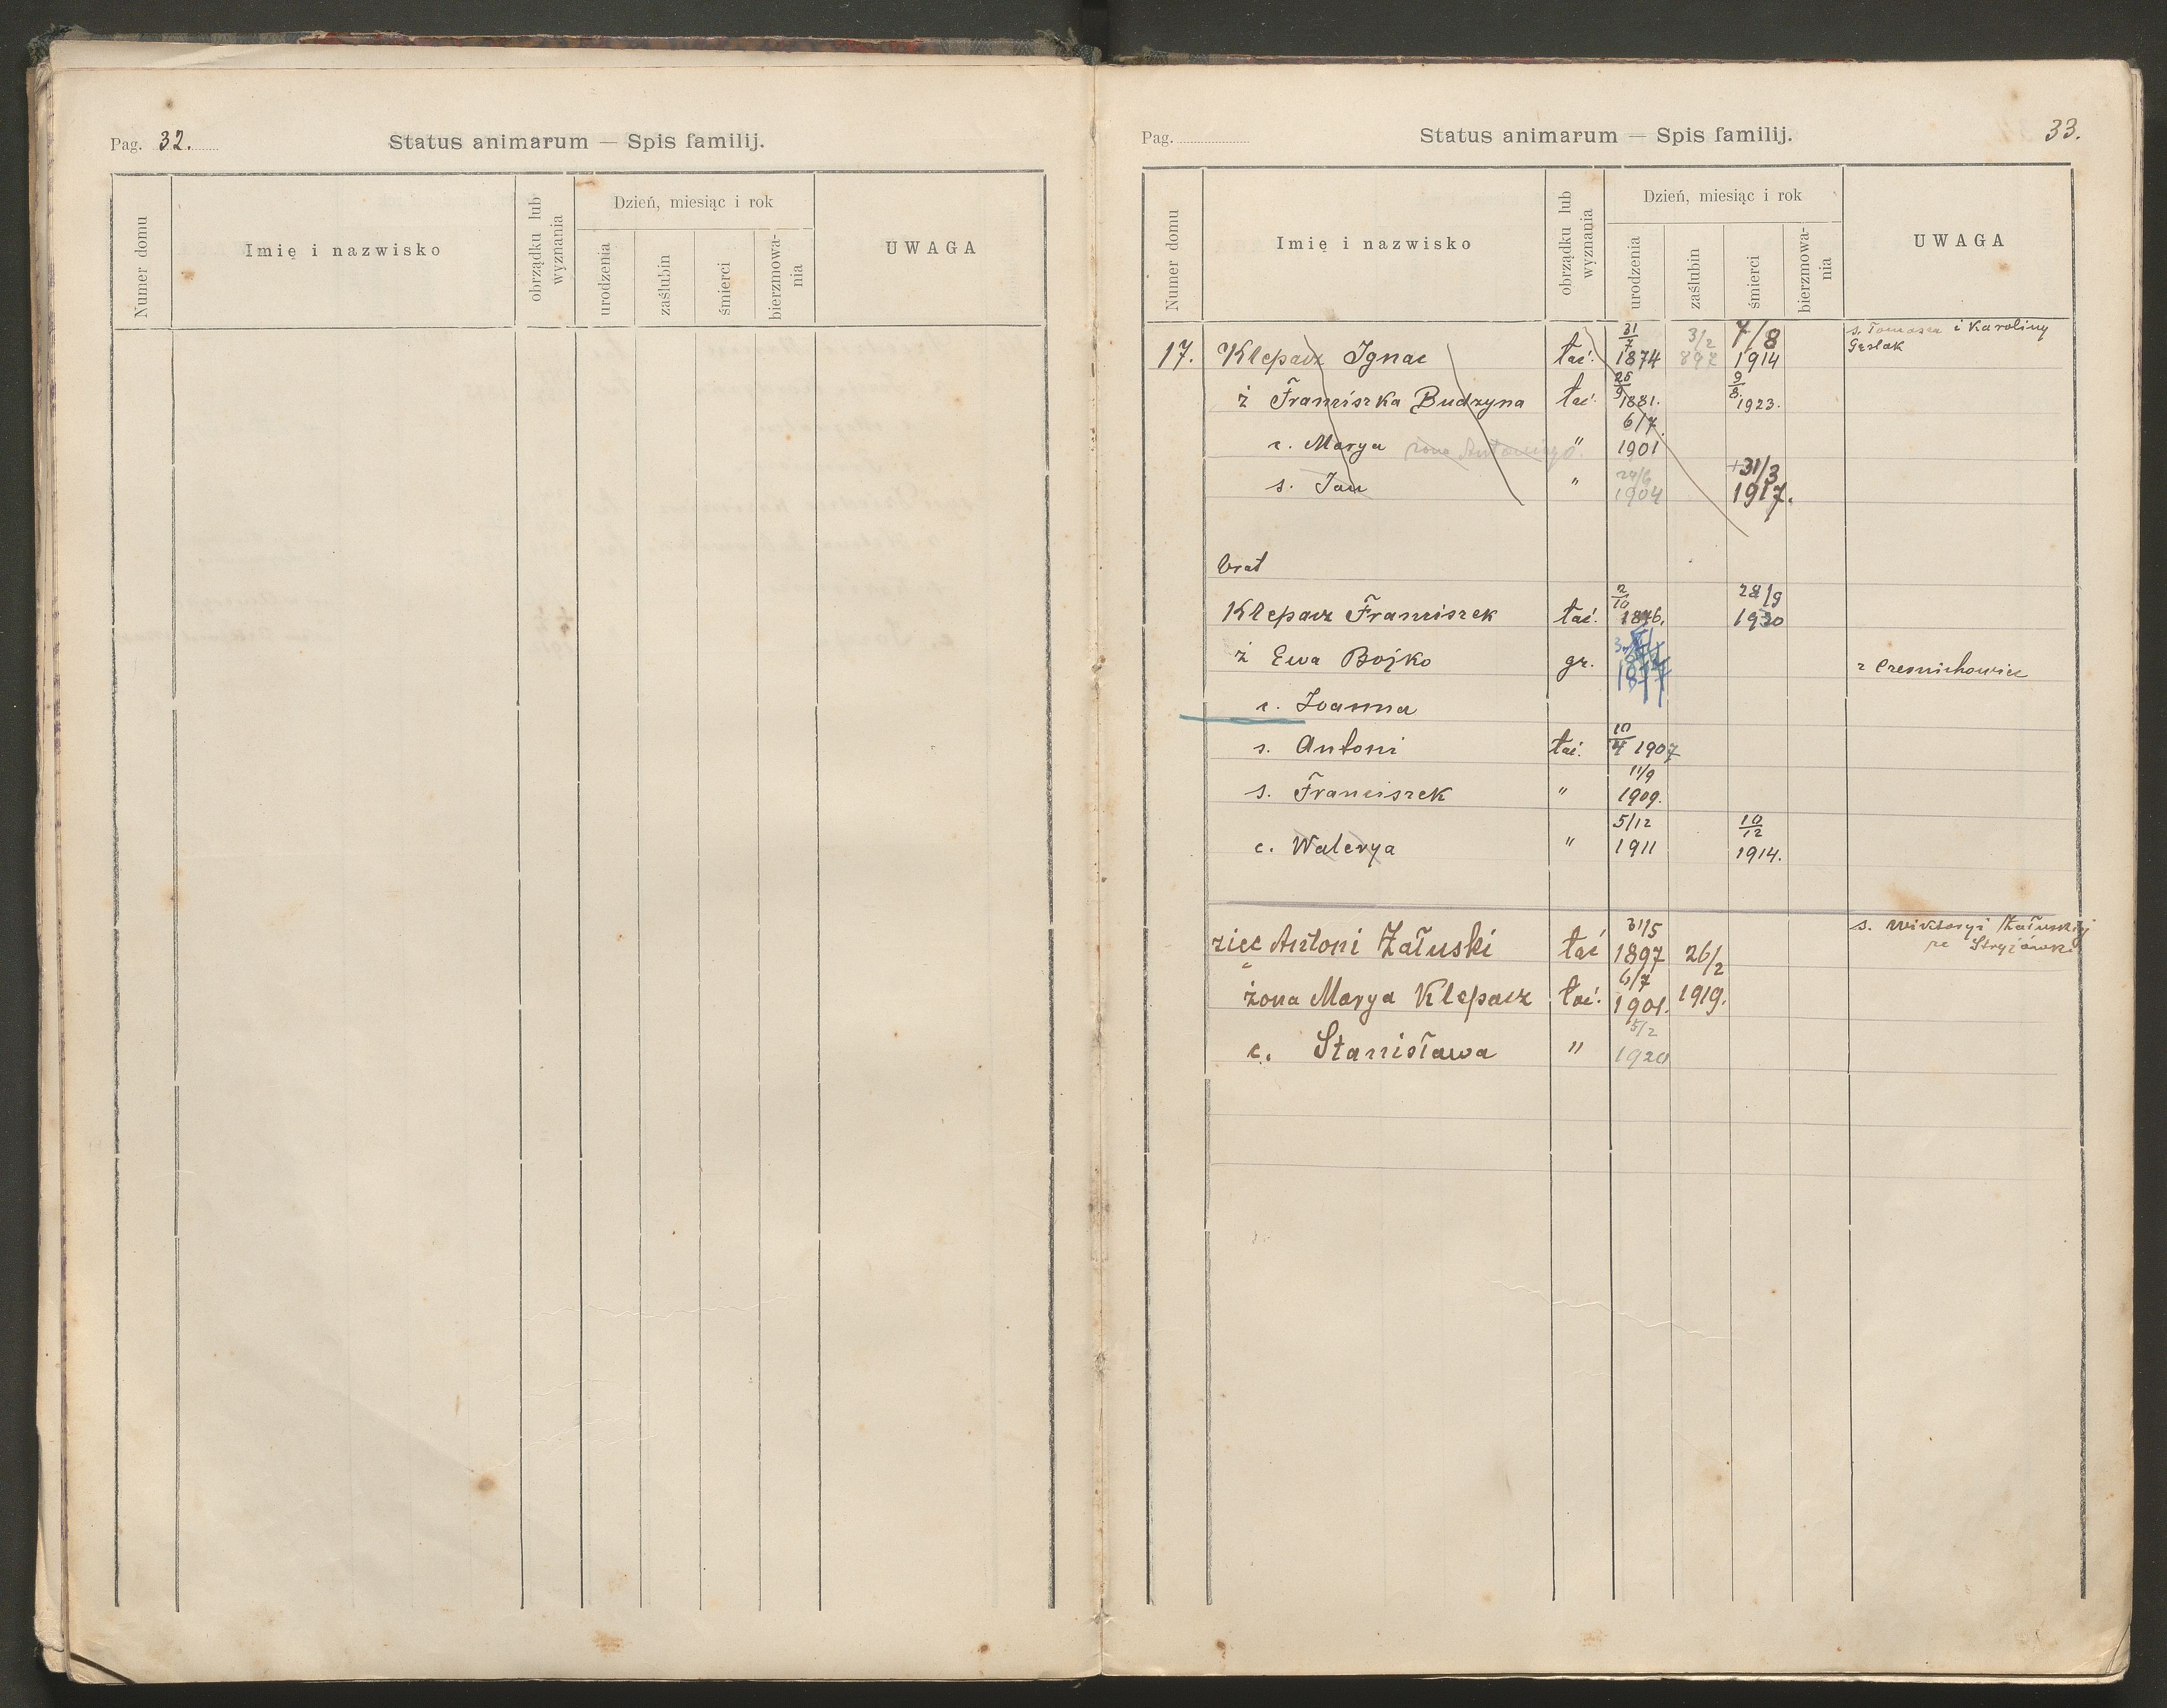 Pag. 32.
Status animarum — Spis familij.
Numer domu
Imię i nazwisko
obrządku lub wyznania
Dzień, miesiąc i rok
urodzenia
zaślubin
śmierci
bierzmowa-
nia
UWAGA
Pag.
Status animarum — Spis familij.
33.
Numer domu
Imię i nazwisko
obrządku lub wyznania
Dzień, miesiąc i rok
urodzenia
zaślubin
śmierci
bierzmowa-
nia
UWAGA
17. Klepacz Ignac łać. 31/7 1874 3/2 897 7/8 1914 s. Tomasza i Karoliny
ż Franciszka Budzyna łać. 26/9 1881. 9/8. 1923.
c. Marya żona Antoniego " 6/7. 1901
s. Jan " 1904 +31/3 1917.
brat
Klepacz Franciszek łać. 2/10 1876. 28/9 1930
ż Ewa Bojko gr. 1877 z Czernichowiec
c. Joanna
s. Antoni łać. 10/4 1907
s. Franciszek " 11/9 1909.
c. Walerya " 5/12 1911 10/12 1914.
zięć Antoni Załuski łać 31/5 1897 26/2 s. Wiktoryi Załuskiej
żona Marya Klepacz łać. 6/7 1901. 1919.
c. Stanisława " 5/2 1920